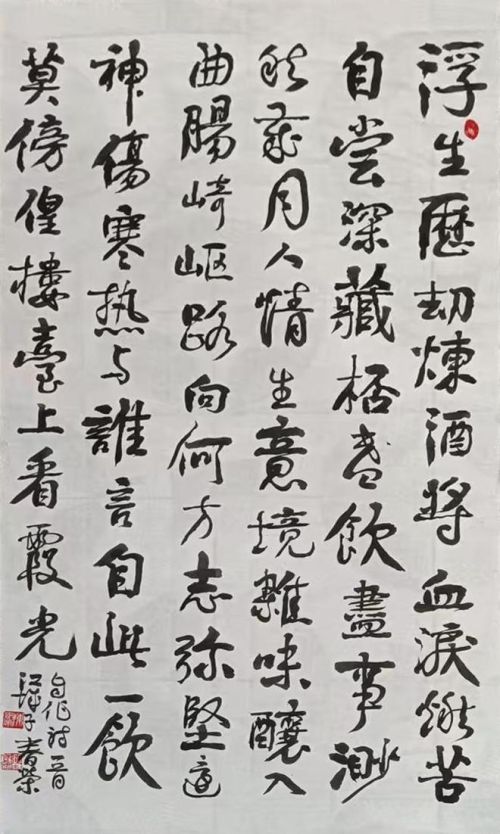 浮生歷劫煉酒將血淚苦
自尝深藏飲盡事渺
月人情生意境雜味釀入
曲腸崎嶇路向何方志弥堅適
神傷寒热与誰言自此一飲
莫傍徨樓臺上看霞光
自作詩一首
子春榮